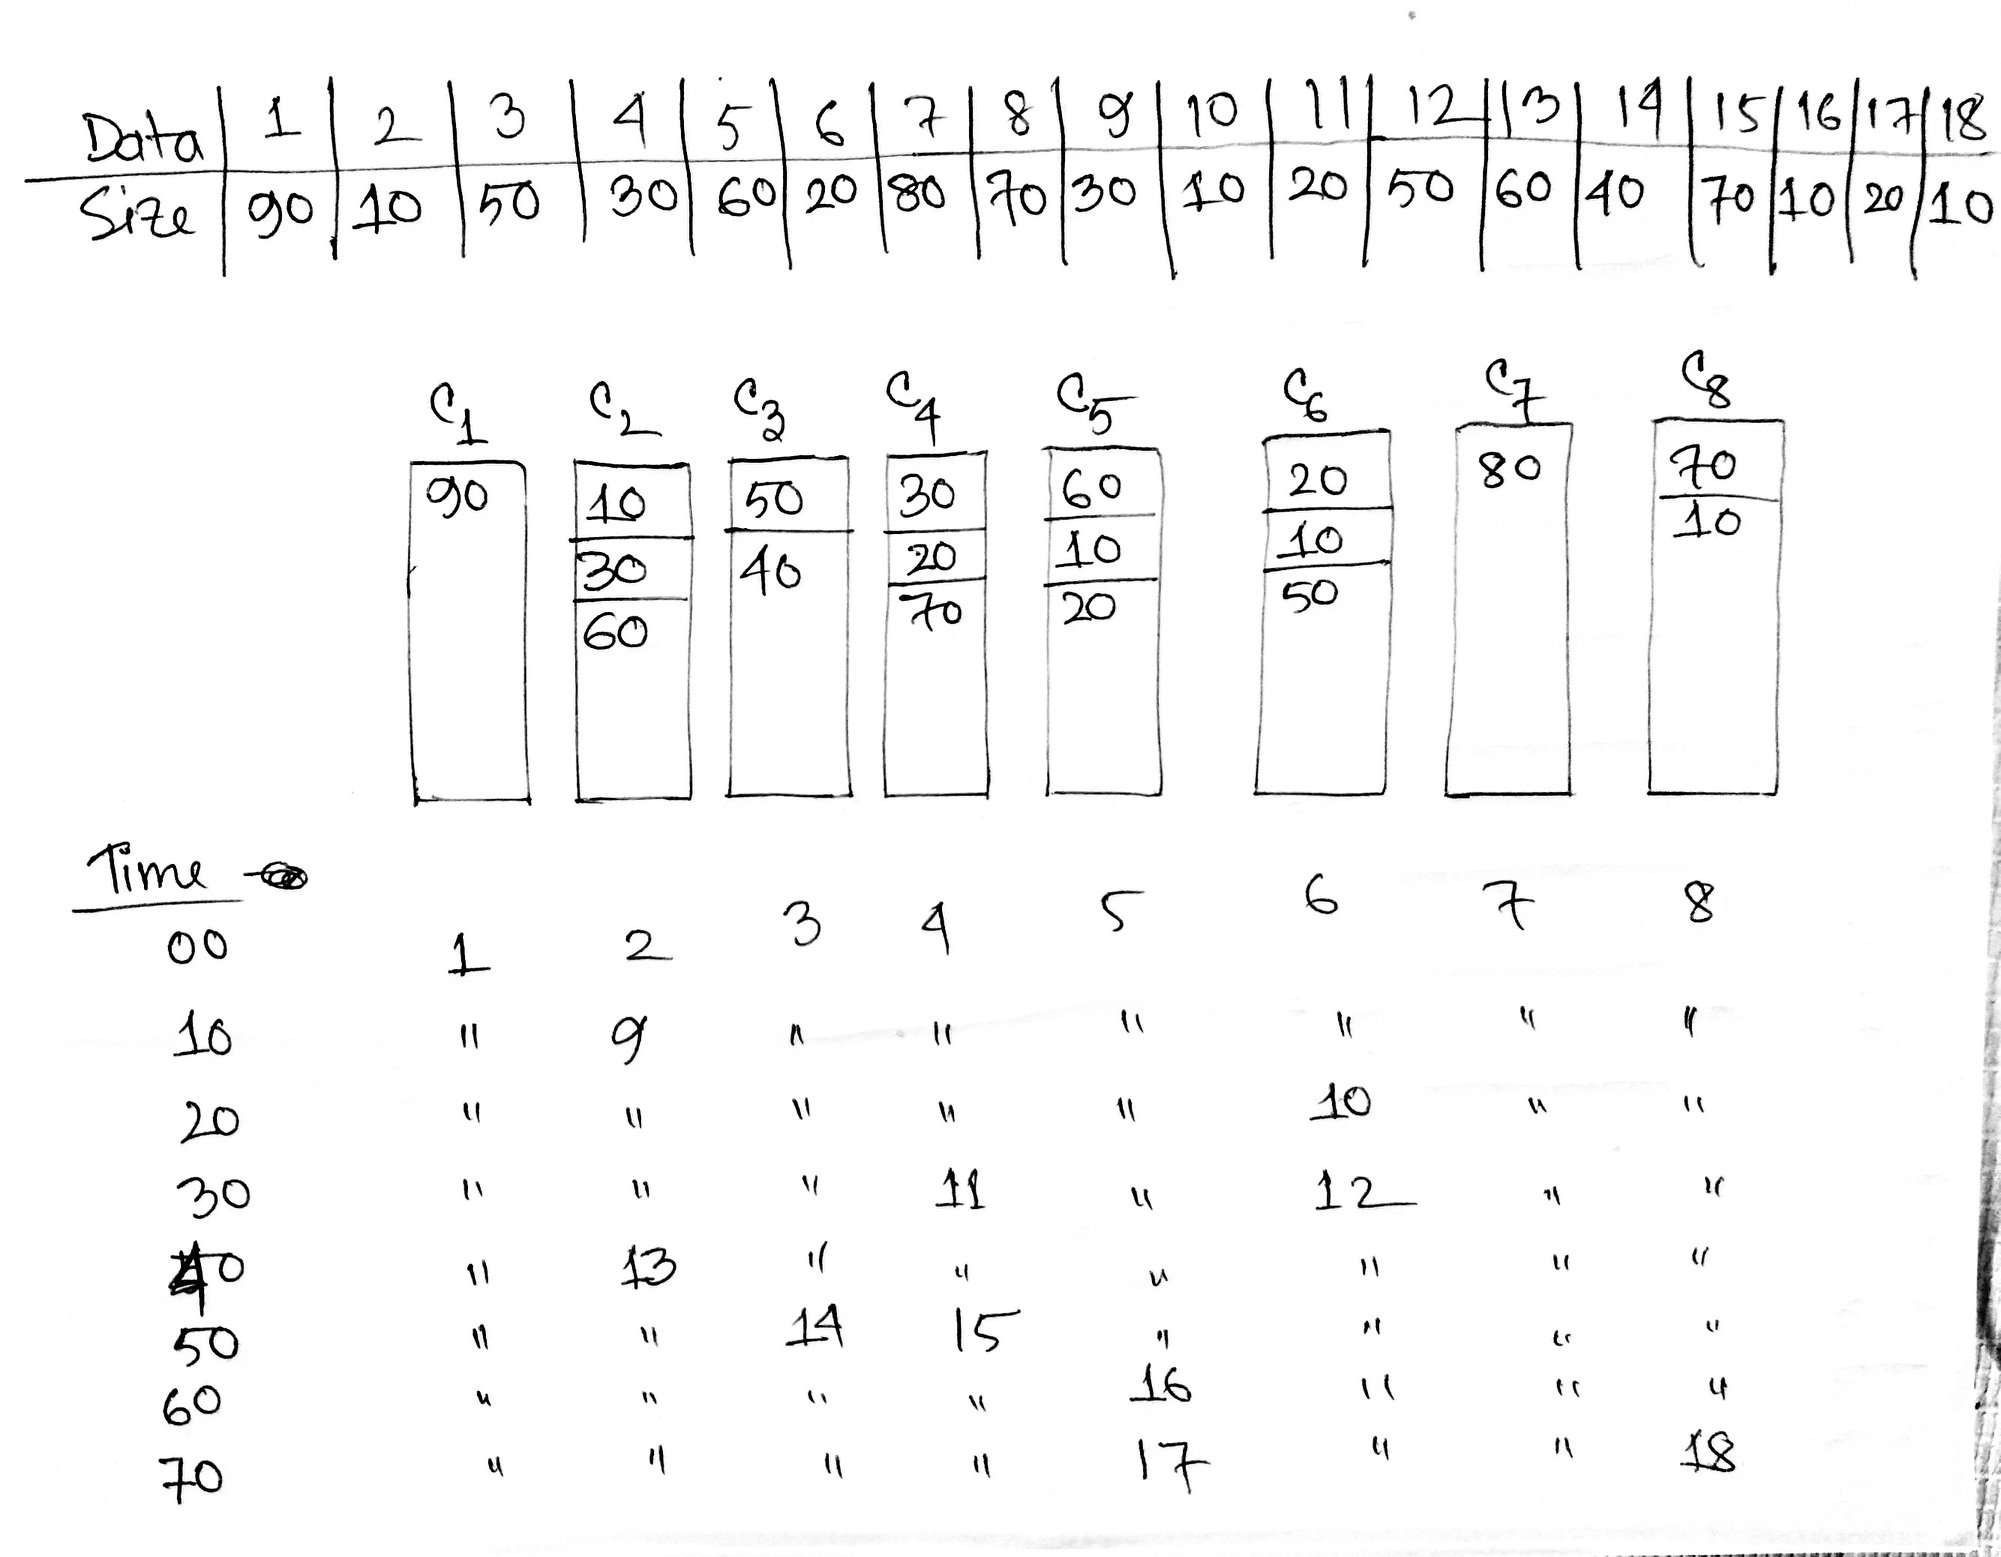 Data 1 2 3 4 5 6 7 8 9 10 11 12 13 14 15 16 17 18
Size 90 10 50 30 60 20 80 70 30 10 20 50 60 40 70 10 20 10
C1 C2 C3 C4 C5 C6 C7 C8
90 10 50 30 60 20 80 70
30 40 20 10 10 10
60 70 20 50
Time
00 1 2 3 4 5 6 7 8
10 " 9 " " " " " "
20 " " " " " 10 " "
30 " " " 11 " 12 " "
40 " 13 " " " " " "
50 " " 14 15 " " " "
60 " " " " 16 " " "
70 " " " " 17 " " 18